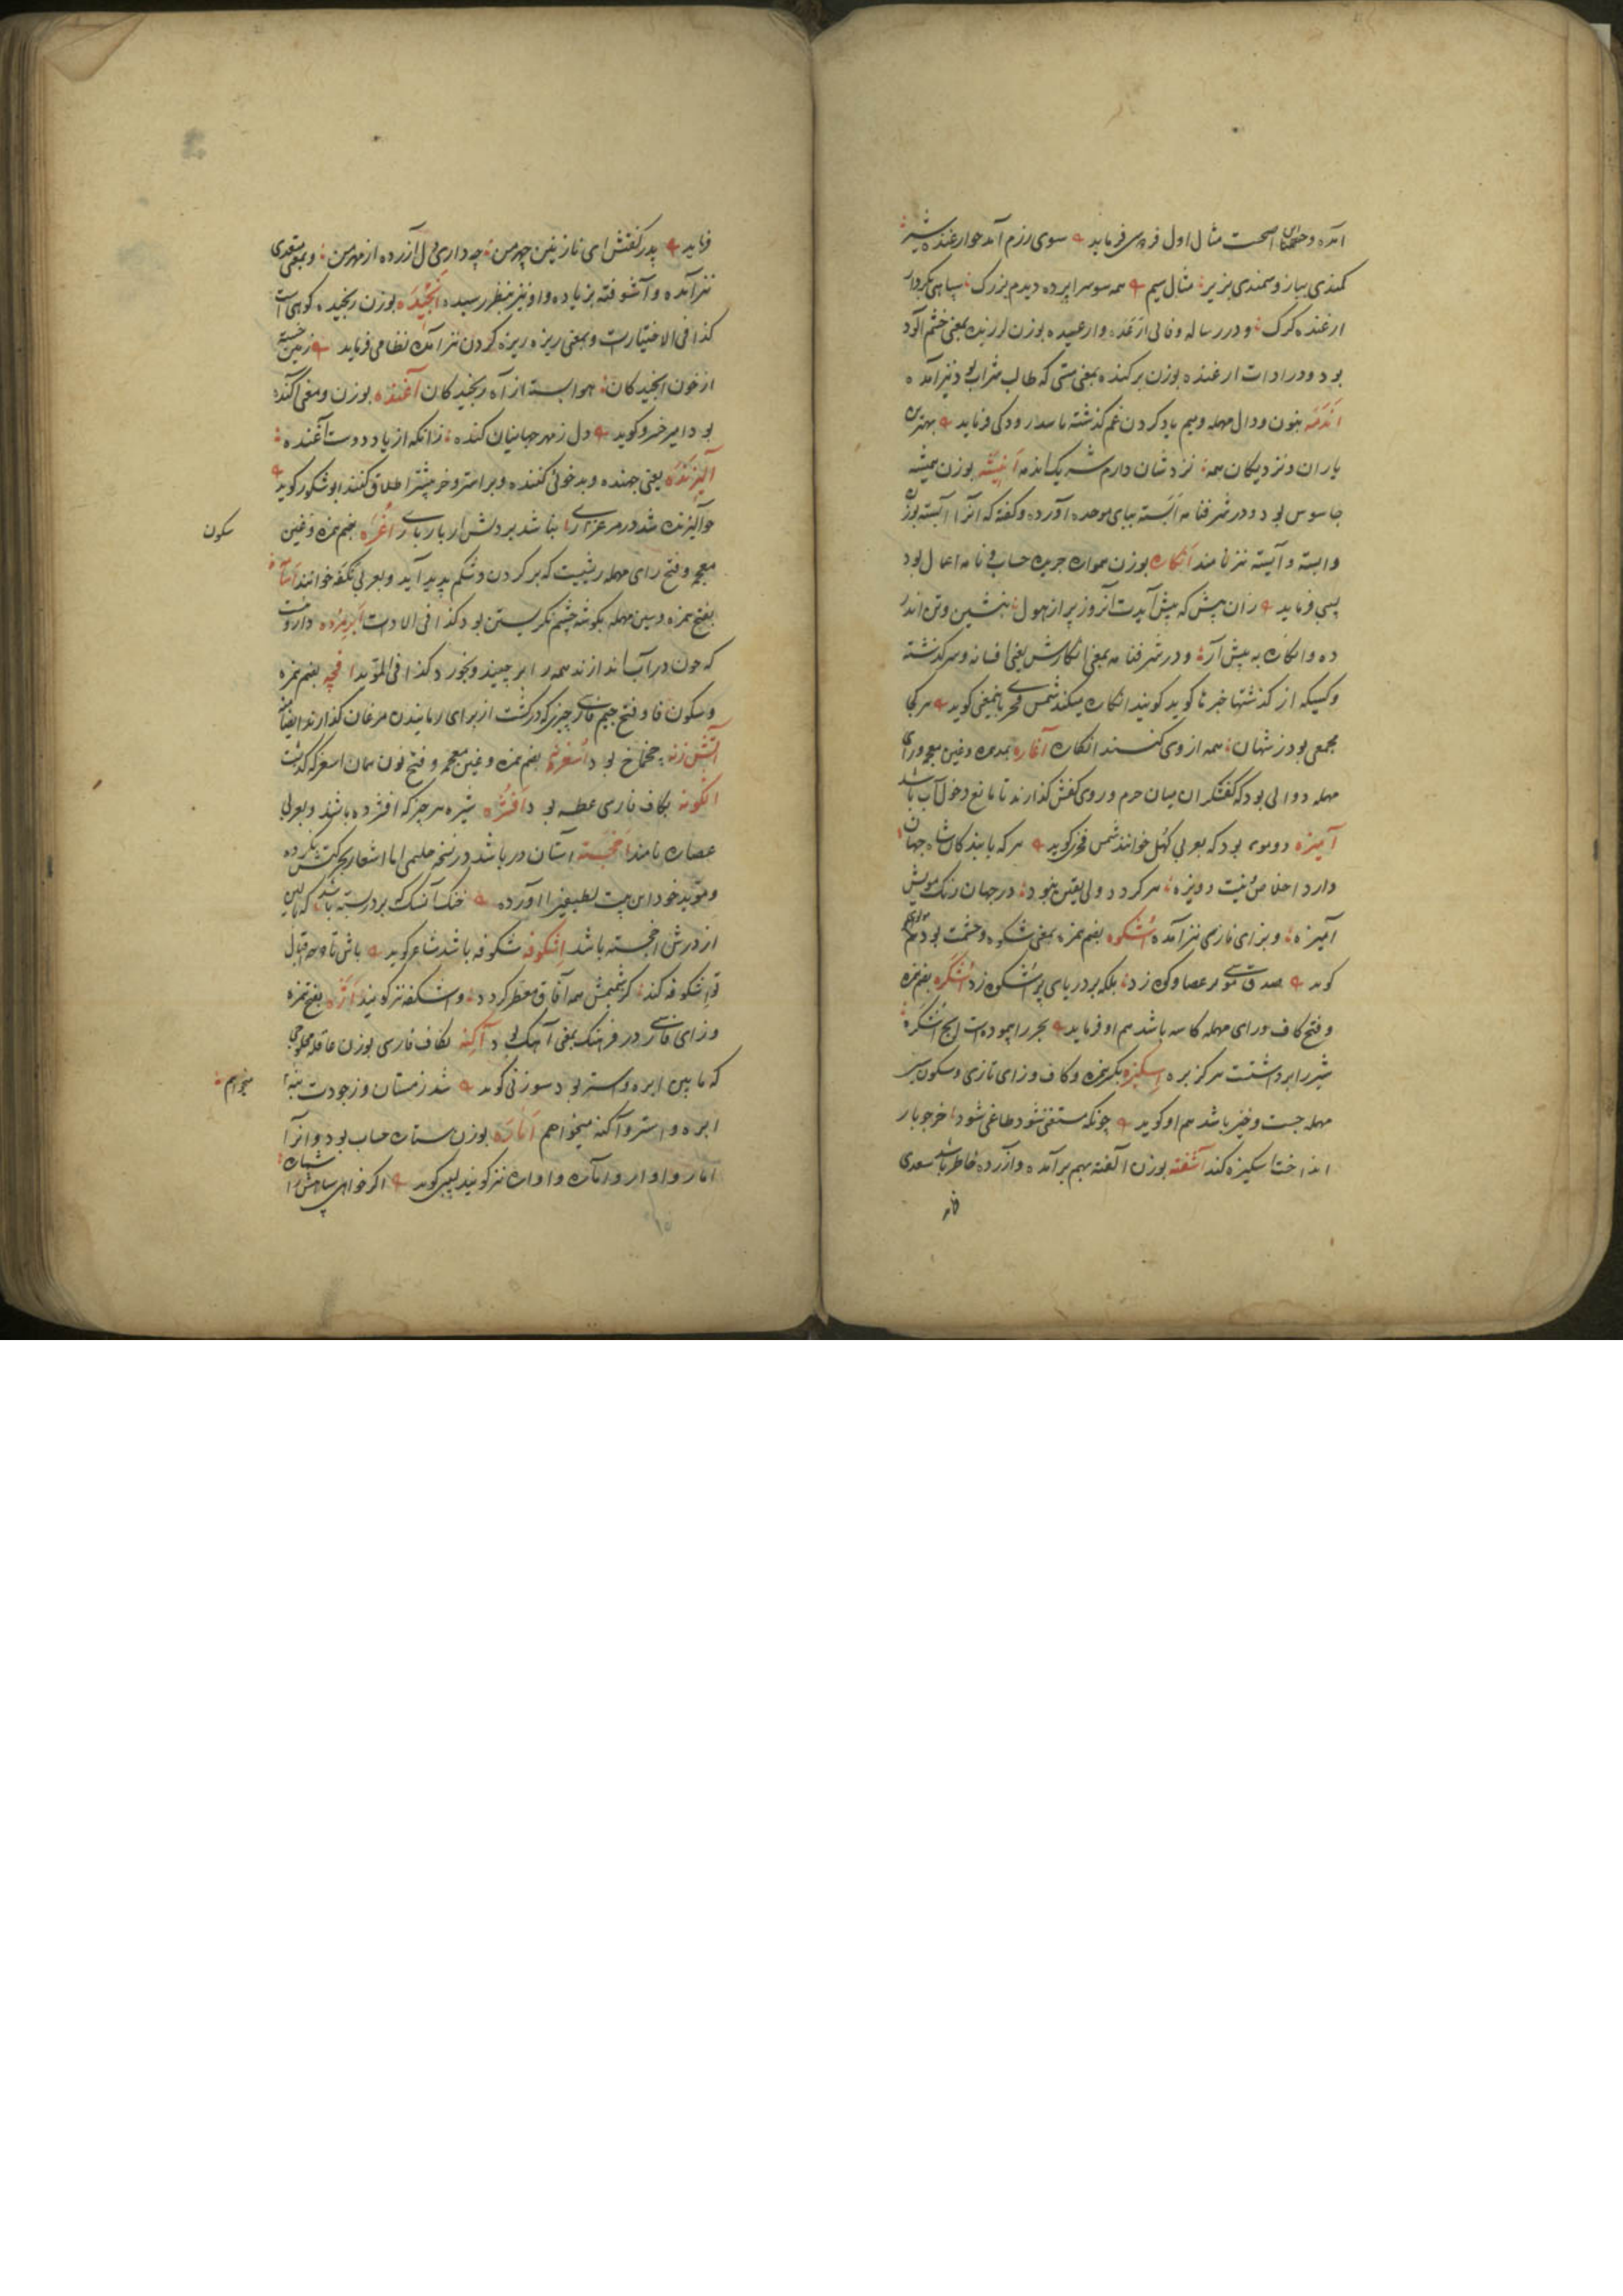 آمده و حشمتناک اصحست مثال اول فردوسی فرماید سوی رزم آمد چو ارغنده شیر
کمندی ببازو سمندی بزیر مثال سیم همه سوسراپرده دیدم بزرک سپاهی بکردار
ارغنده کرک و در رساله وفائی ارغده و ارغیده بوزن لرزیده بمعنی خشم آلود
بود و در ادات ارغنده بوزن برکنده بمعنی مستی که طالب شراب بود نیز آمده
اندمه بنون و دال مهمله و میم یاد کردن غم کذشته باشد رودکی فرماید بهترین
یاران و نزدیکان همه نزد شان دارم همیشه اندمه انیشه بوزن همیشه
جاسوس بود و در شرفنامه ابسته ببای موحده آورده و کفته که انرا آیسته بوزن
وابسته و آیسته نیز نامند انکاره بوزن همواره جریده حساب و نامه اعمال بود
لبیبی فرماید زان پیش که پیش آیدت آنروز پر از هول بنشین و تن اندر
ده و انکاره به پیش آر و در شرفنامه بمعنی انکارش یعنی افسانه و سرکذشته
و کسیکه از کذشتها خبرها کوید کویند انکاره میکند شمس فخری باینمعنی کوید هر کجا
مجمعی بود ز شهان همه از وی کنند انکاره آغاره بمده و غین معجمه و رای
مهمله دوالی بود که کفشکران میان چرم و روی کفش کذارند تا مانع دخول آب باشد
آمیزه دوموی بود که بعربی کهل خوانند شمس فخری کوید هر که با بندکان شاه جهان
دارد اخلاص و نیت ویژه هر کردد ولی یقین نبود در جهان رنک مویش
آمیزه و بزای فارسی نیز آمده اشکوه بضم همزه بمعنی شکوه و حشمت بود مولوی
کوید صدق موسی بر عصا و کوه زد بلکه بر دریای پر اشکوه زد اشکره بفتح همزه
و فتح کاف و رای مهمله کاسه باشد هم او فرماید بحر را پیمود هیچ اشکره
شیر را برداشت هرکز بره اسکیزه بکسر همزه و کاف و زای تازی و سکون سین
مهمله جست و خیز باشد هم او کوید چونکه مستغنی شود طاغی شود خر چو بار
انداخت اسکیزه کند آشفته بوزن آلفته بهم برآمده و آزرده خاطر باشد سعدی
فرماید
فرماید پدر کفتش ای نازنین چهر من چه داری دل آزرده از مهر من و بمعنی متعدی
نیز آمده و آشوفته بزیاده واو نیز بنظر رسیده انجیده بوزن رنجیده کوهیست
کذا فی الاختیارات و بمعنی ریزه ریزه کردن نیز آمده نظامی فرماید زمین خسته
از خون انجیدکان هوا بسته از آه رنجیدکان آغنده بوزن و معنی آکنده
بود امیر خسرو کوید دل ز مهر جهانیان کنده زانکه از یاد دوست آغنده
آلیزنده یعنی جهنده و بدخوئی کننده و بر استر و خر بیشتر اطلاق کنند ابوشکور کوید
چو آلیزنده شد در مرغزاری نباشد بر دلش از بار باری اغره بضم همزه و غین
سکون
معجمه و فتح رای مهمله ریشیست که بر کردن و شکم پدید آید و بعربی نکفه خوانند
بفتح همزه و سین مهمله بکوشه چشم نکریستن بود کذا فی الادات ابرمرده داروئیست
که چون در آب اندازند همه را برچیند و بخورد کذا فی المؤید افچه بضم همزه
و سکون فا و فتح جیم فارسی چیزی که در کشت از برای رمانیدن مرغان کذارند ایضا
آتش زنه چخماخ بود اسغرنه بضم همزه و غین معجمه و فتح نون همان اسغر که کذشت
بکاف فارسی عطسه بود افشره شیره هر چیز که افشرده باشند و بعربی
عصاره نامند افجسته آستان در باشد در نسخه حلیمی اما اشعار بحرکتش نکرده
و مؤید خود این بیت لطیفی را آورده خنک آنسک بر در بسته باشد که بالین
از درش افجسته باشد اشکوفه شکوفه باشد شاعر کوید باش تا صبح اقبال
تو اشکوفه کند کز شمیمش همه آفاق معطر کردد و اشکفه نیز کویند اژه بفتح همزه
و زای فارسی در فرهنک بمعنی آهک بود آکنه بکاف فارسی بوزن عاقله محلوجی
که مابین ابره و استر بود سوزنی کوید شد زمستان و ز جودت پنبه
میخواهم
ابره و استر و آکنه میخواهم اماره بوزن ستاره حساب بود و انرا
آمار و اوار و آماره و اواره نیز کویند لبیبی کوید اکر خواهی سپاهش را شماره